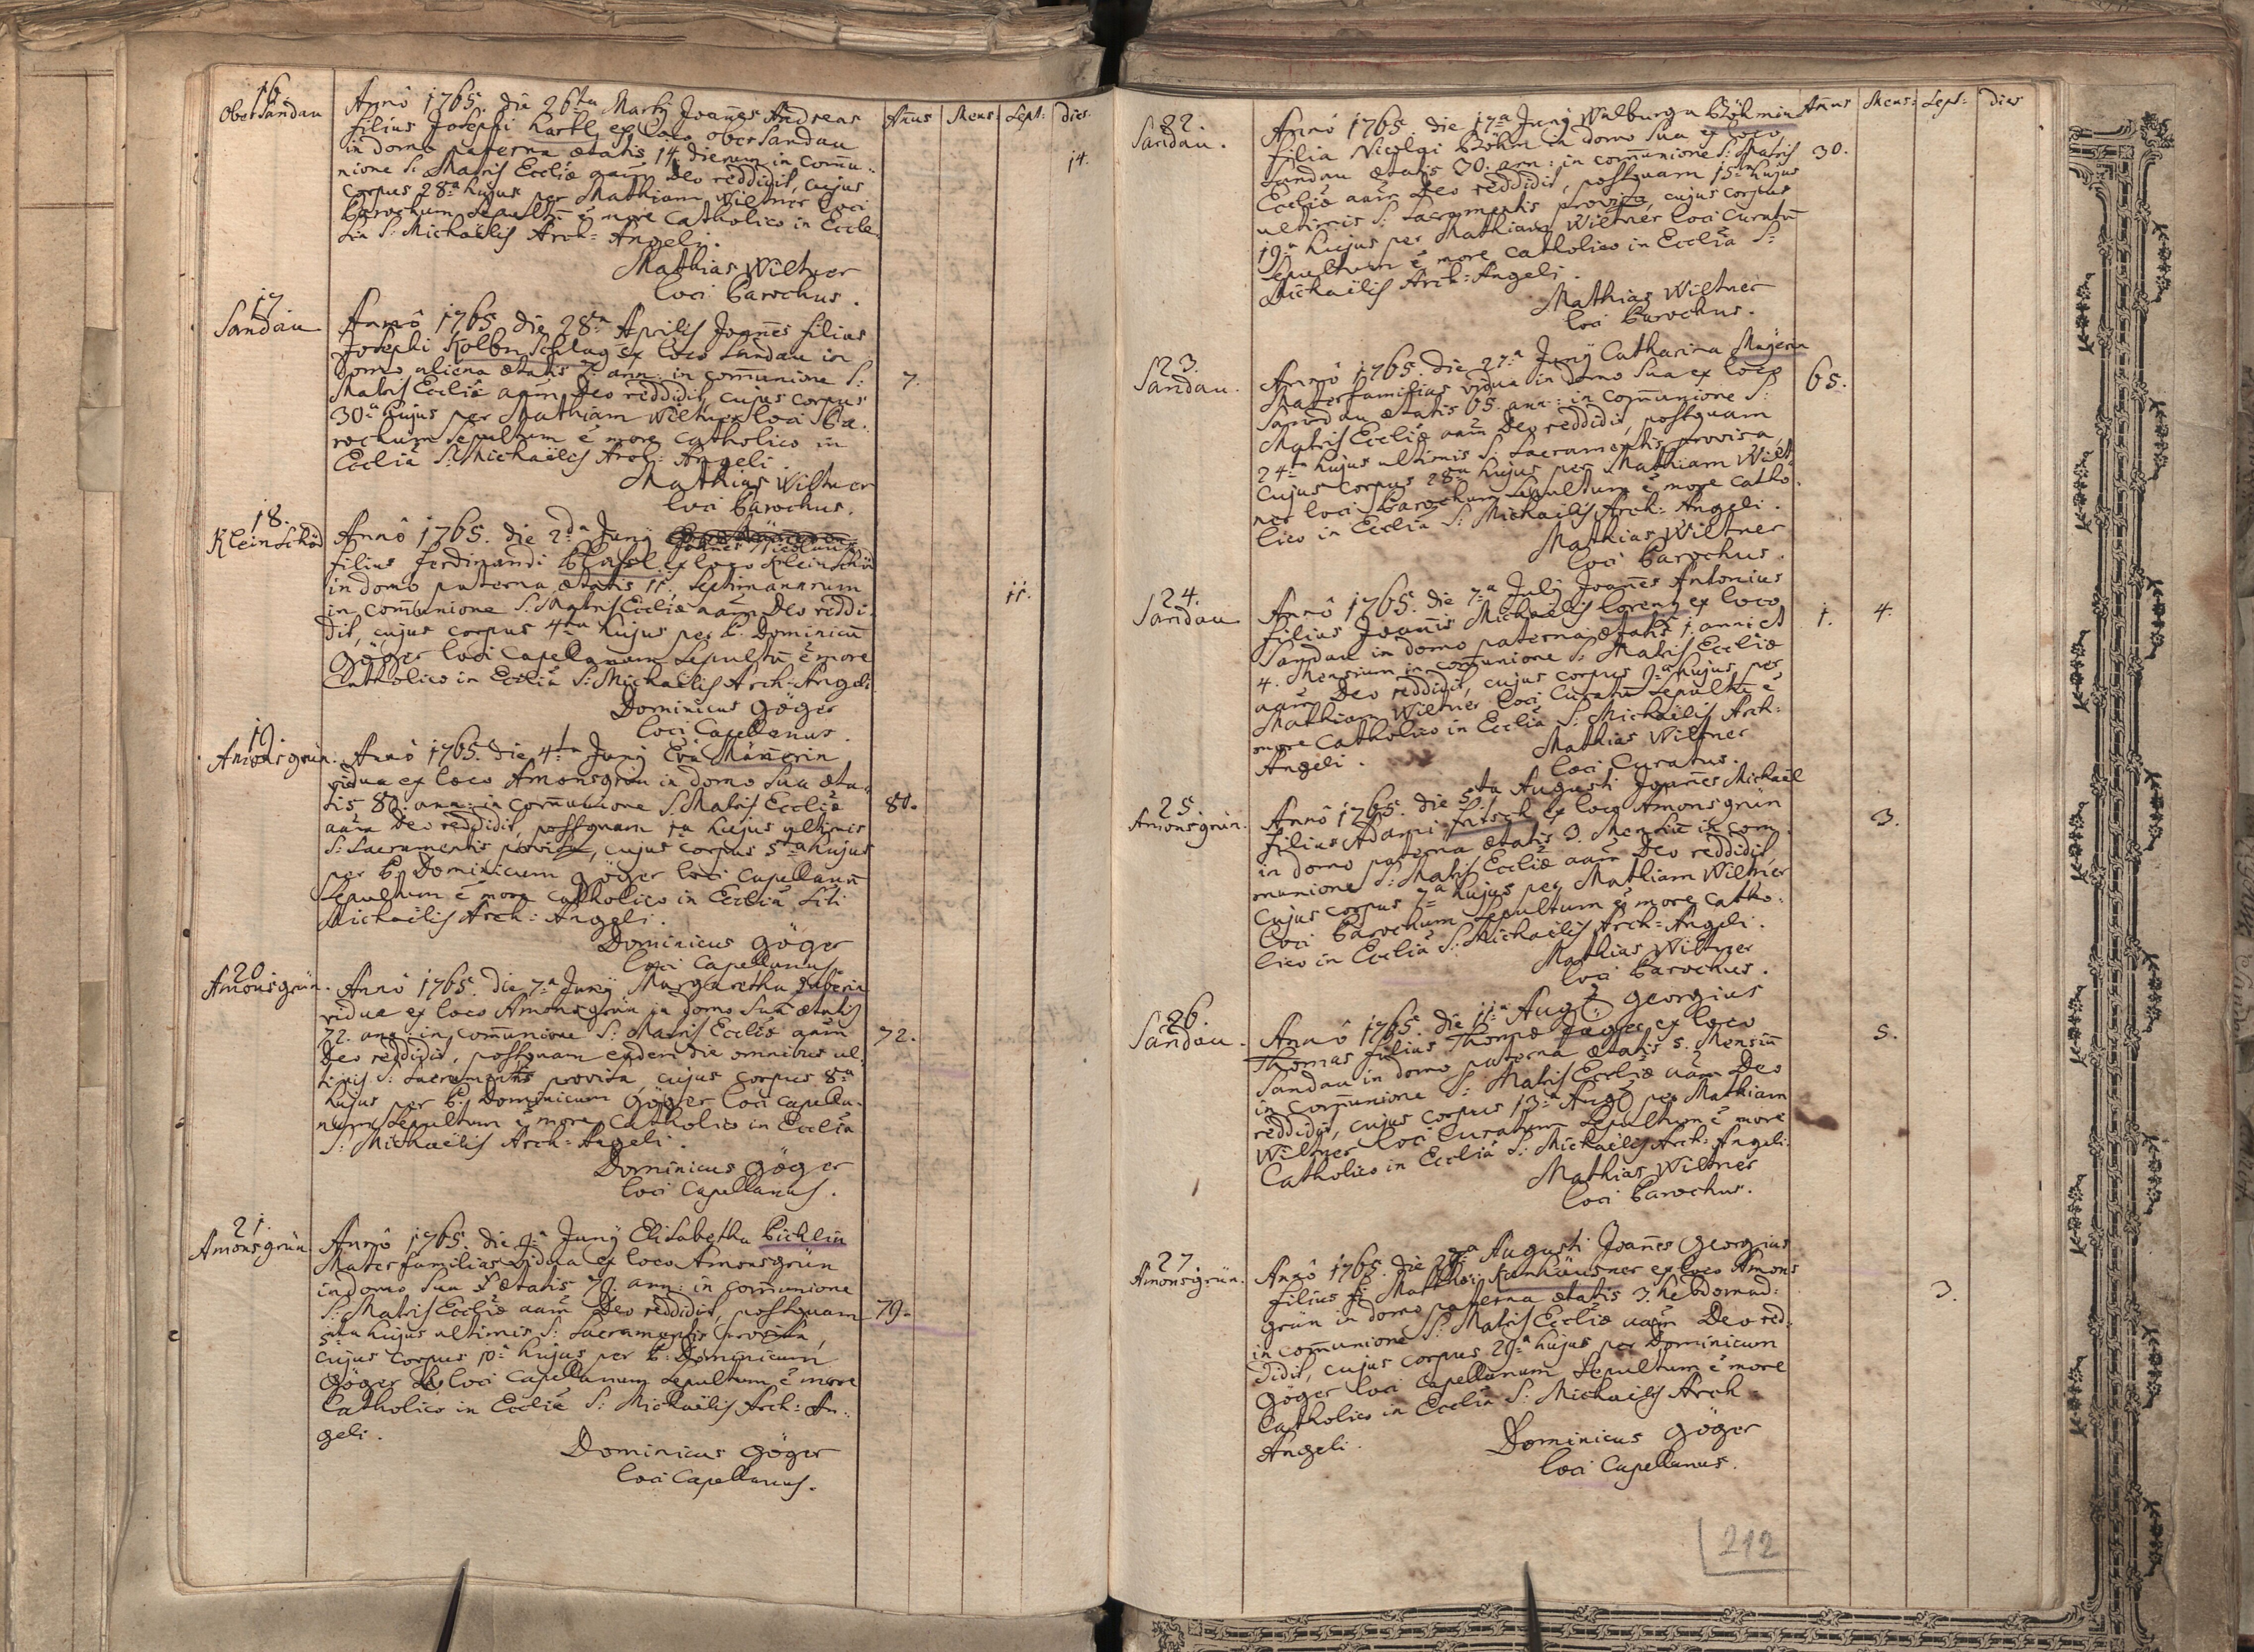 16.
Ober Sandau
Annô 1765. die 26ta Martÿ Joañes Andreas
filius Josephi Hartl ex loco ober Sandau
in domo paterna ætatis 14 dierum in Comu-
nione S: Matris Eccliæ aãm Deo reddidit, cujus
corpus 28a hujus per Mathiam Wiltner loci
Parochum Sepultũ ẽ more Catholico in Eccle-
sia S: Michaëlis Arch: Angeli.
Mathias Wiltner
loci Parochus.
Añus
Mens:
Sept:
dies.
14.
17
Sandau
Annô 1765 die 28va Aprilis Joañes filius
Josephi Kolbn Schlag ex loco Sandau in
domo aliena ætatis 7. ann: in comunione S:
Matris Eccliæ aãm Deo reddidit, cujus corpus
30a hujus per Mathiam Wiltner loci Pa-
rochum Sepultum ẽ more Catholico in
Eccliâ S: Michaëlis Arch: Angeli.
Mathias Wiltner
loci Parochus.
7.
18.
Klein Schüd
Annô 1765. die 2da Junÿ
Joañes Nicolaus
filius Ferdinandi Blasl ex loco Klein Schüd
in domo paterna ætatis 11. Septimanarum
in comunione S: Matris Eccliæ aãm Deo reddi-
dit, cujus corpus 4ta hujus per P. Dominicũ
Göger loci Capellanum Sepultũ ẽ more
Catholico in Eccliâ S: Michaëlis Arch: Angeli
Dominicus Göger
loci Capellanus.
11.
19
Amonsgrün.
Annô 1765. die 4ta Junÿ Eva Männerin
vidua ex loco Amonsgrün in domo Sua æta-
tis 80. ann: in comunione S: Matris Eccliæ
aãm Deo reddidit, postquam 1a hujus ultimis
S: Sacramentis provisa, cujus corpus 5ta hujus
per P: Dominicum Göger loci Capellanũ
Sepultum ẽ more Catholico in Eccliâ Sti
Michaëlis Arch: Angeli.
Dominicus Göger
loci Capellanus
80.
20
Amonsgrün.
Annô 1765. die 7a Junÿ Margaretha Huberin
vidua ex loco Amonsgrün in domo Sua ætatis
72. ann: in comunione S: Matris Eccliæ aãm
Deo reddidit, postquam eadem die omnibus ul-
timis S: Sacramentis provisa cujus corpus 8va
hujus per P: Dominicum Göger loci Capella-
num Sepultum ẽ more Catholico in Eccliâ
S: Michaëlis Arch: Angeli.
Dominicus Göger
loci Capellanus.
72.
21.
Amonsgrün
Annô 1765. die 9a Junÿ Elisabetha Pichlin
Mater familias Vidua ex loco Amonsgrün
in domo Sua ætatis 79. ann: in comunione
S: Matris Eccliæ aãm Deo reddidit, postquam
5ta hujus ultimis S: Sacramentis provisa,
cujus corpus 10a hujus per P: Dominicum
Göger loci Capellanum Sepultum ẽ more
Catholico in Eccliâ S: Michaëlis Arch: An-
geli.
Dominicus Göger
loci Capellanus.
79.
22.
Sandau.
Annô 1765. die 17a Junÿ Walburga Böhmin
filia Nicolai Böhm in domo Sua ex loco
Sandau ætatis 30. ann: in comunione S: Matris
Eccliæ aãm Deo reddidit, postquam 15ta hujus
ultimis S: Sacramentis provisa, cujus corpus
19a hujus per Mathiam Wiltner loci Curatũ
Sepultum ẽ more Catholico in Eccliâ S:
Michaëlis Arch: Angeli.
Mathias Wiltner
loci Parochus.
Añus
Mens:
Sept:
dies
30.
23.
Sandau.
Annô 1765. die 27a Junÿ Catharina Mayerin
Mater familias vidua in domo Sua ex loco
Sandau ætatis 65. ann: in comunione S:
Matris Eccliæ aãm Deo reddidit, postquam
24ta hujus ultimis S: Sacramentis provisa,
cujus corpus 28va hujus per Mathiam Wilt-
ner loci Parochum Sepultum ẽ more Catho-
lico in Eccliâ S: Michaëlis Arch: Angeli.
Mathias Wiltner
loci Parochus.
65.
24.
Sandau
Annô 1765. die 7a Julÿ Joañes Antonius
filius Joannis Michaëlis Lorenz ex loco
Sandau in domo paterna ætatis 1. anni et
4. Mensium in comunione S: Matris Eccliæ
aãm Deo reddidit, cujus corpus 9a hujus per
Mathiam Wiltner loci Curatũ Sepultũ ẽ
more Catholico in Eccliâ S: Michaëlis Arch:
Angeli.
Mathias Wiltner
loci Curatus.
1.
4.
25.
Amonsgrün.
Annô 1765. die 5ta Augusti Joannes Michaël
filius Adami Fritsch ex loco Amonsgrün
in domo paterna ætatis 3. Mensiũ in com-
munione S: Matris Eccliæ aãm Deo reddidit
cujus corpus 7a hujus per Mathiam Wiltner
loci Parochum Sepultum ẽ more Catho-
lico in Eccliâ S: Michaëlis Arch: Angeli.
Mathias Wiltner
loci Parochus.
3.
26.
Sandau.
Annô 1765. die 11a Aug: Georgius
Thomas filius Thomæ Jäger ex loco
Sandau in domo paterna ætatis 5. Mensiũ
in comunione S: Matris Eccliæ aãm Deo
reddidit, cujus corpus 13a Aug: per Mathiam
Wiltner loci Curatum Sepultum ẽ more
Catholico in Eccliâ S: Michaëlis Arch: Angeli.
Mathias Wiltner
loci Parochus.
5.
27.
Amonsgrün.
Annô 1765. die Augusti Joañes Georgius
filius Matthæi Kunhäusner ex loco Amons
grün in domo paterna ætatis 3. hebdomad:
in comunione S: Matris Eccliæ aãm Deo red-
didit, cujus corpus 29a hujus per Dominicum
Göger loci Capellanum Sepultum ẽ more
Catholico in Eccliâ S: Michaëlis Arch:
Angeli.
Dominicus Göger
loci Capellanus.
3.
212